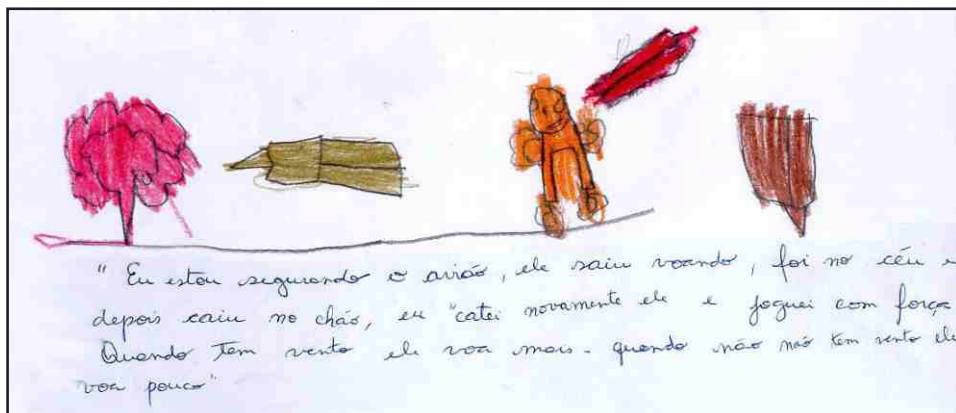 " Eu estou segurando o avião, ele saiu voando, foi no céu e
depois caiu no chão, eu "catei novamente ele e joguei com força
Quando tem vento ele voa mais. quando não não tem vento ele
voa pouco"